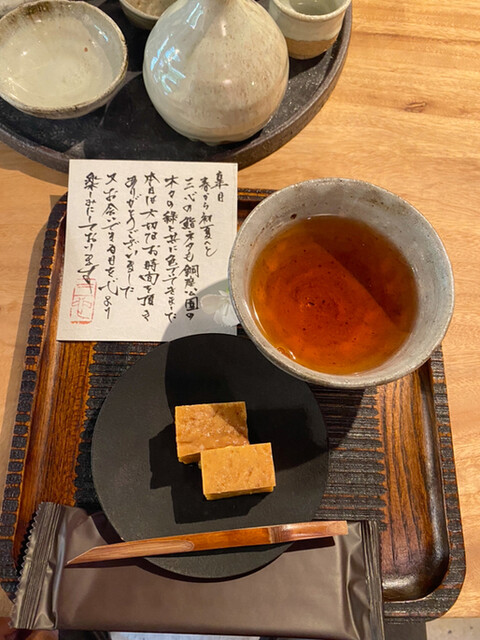 皐月
春から初夏へと
三心の鮨ネタも銅座公園の
木々の緑と共に色づてきました
本日は大切なお時間を頂き
ありがとうございました
又お会いできる日を心より
楽しみにしております
三心